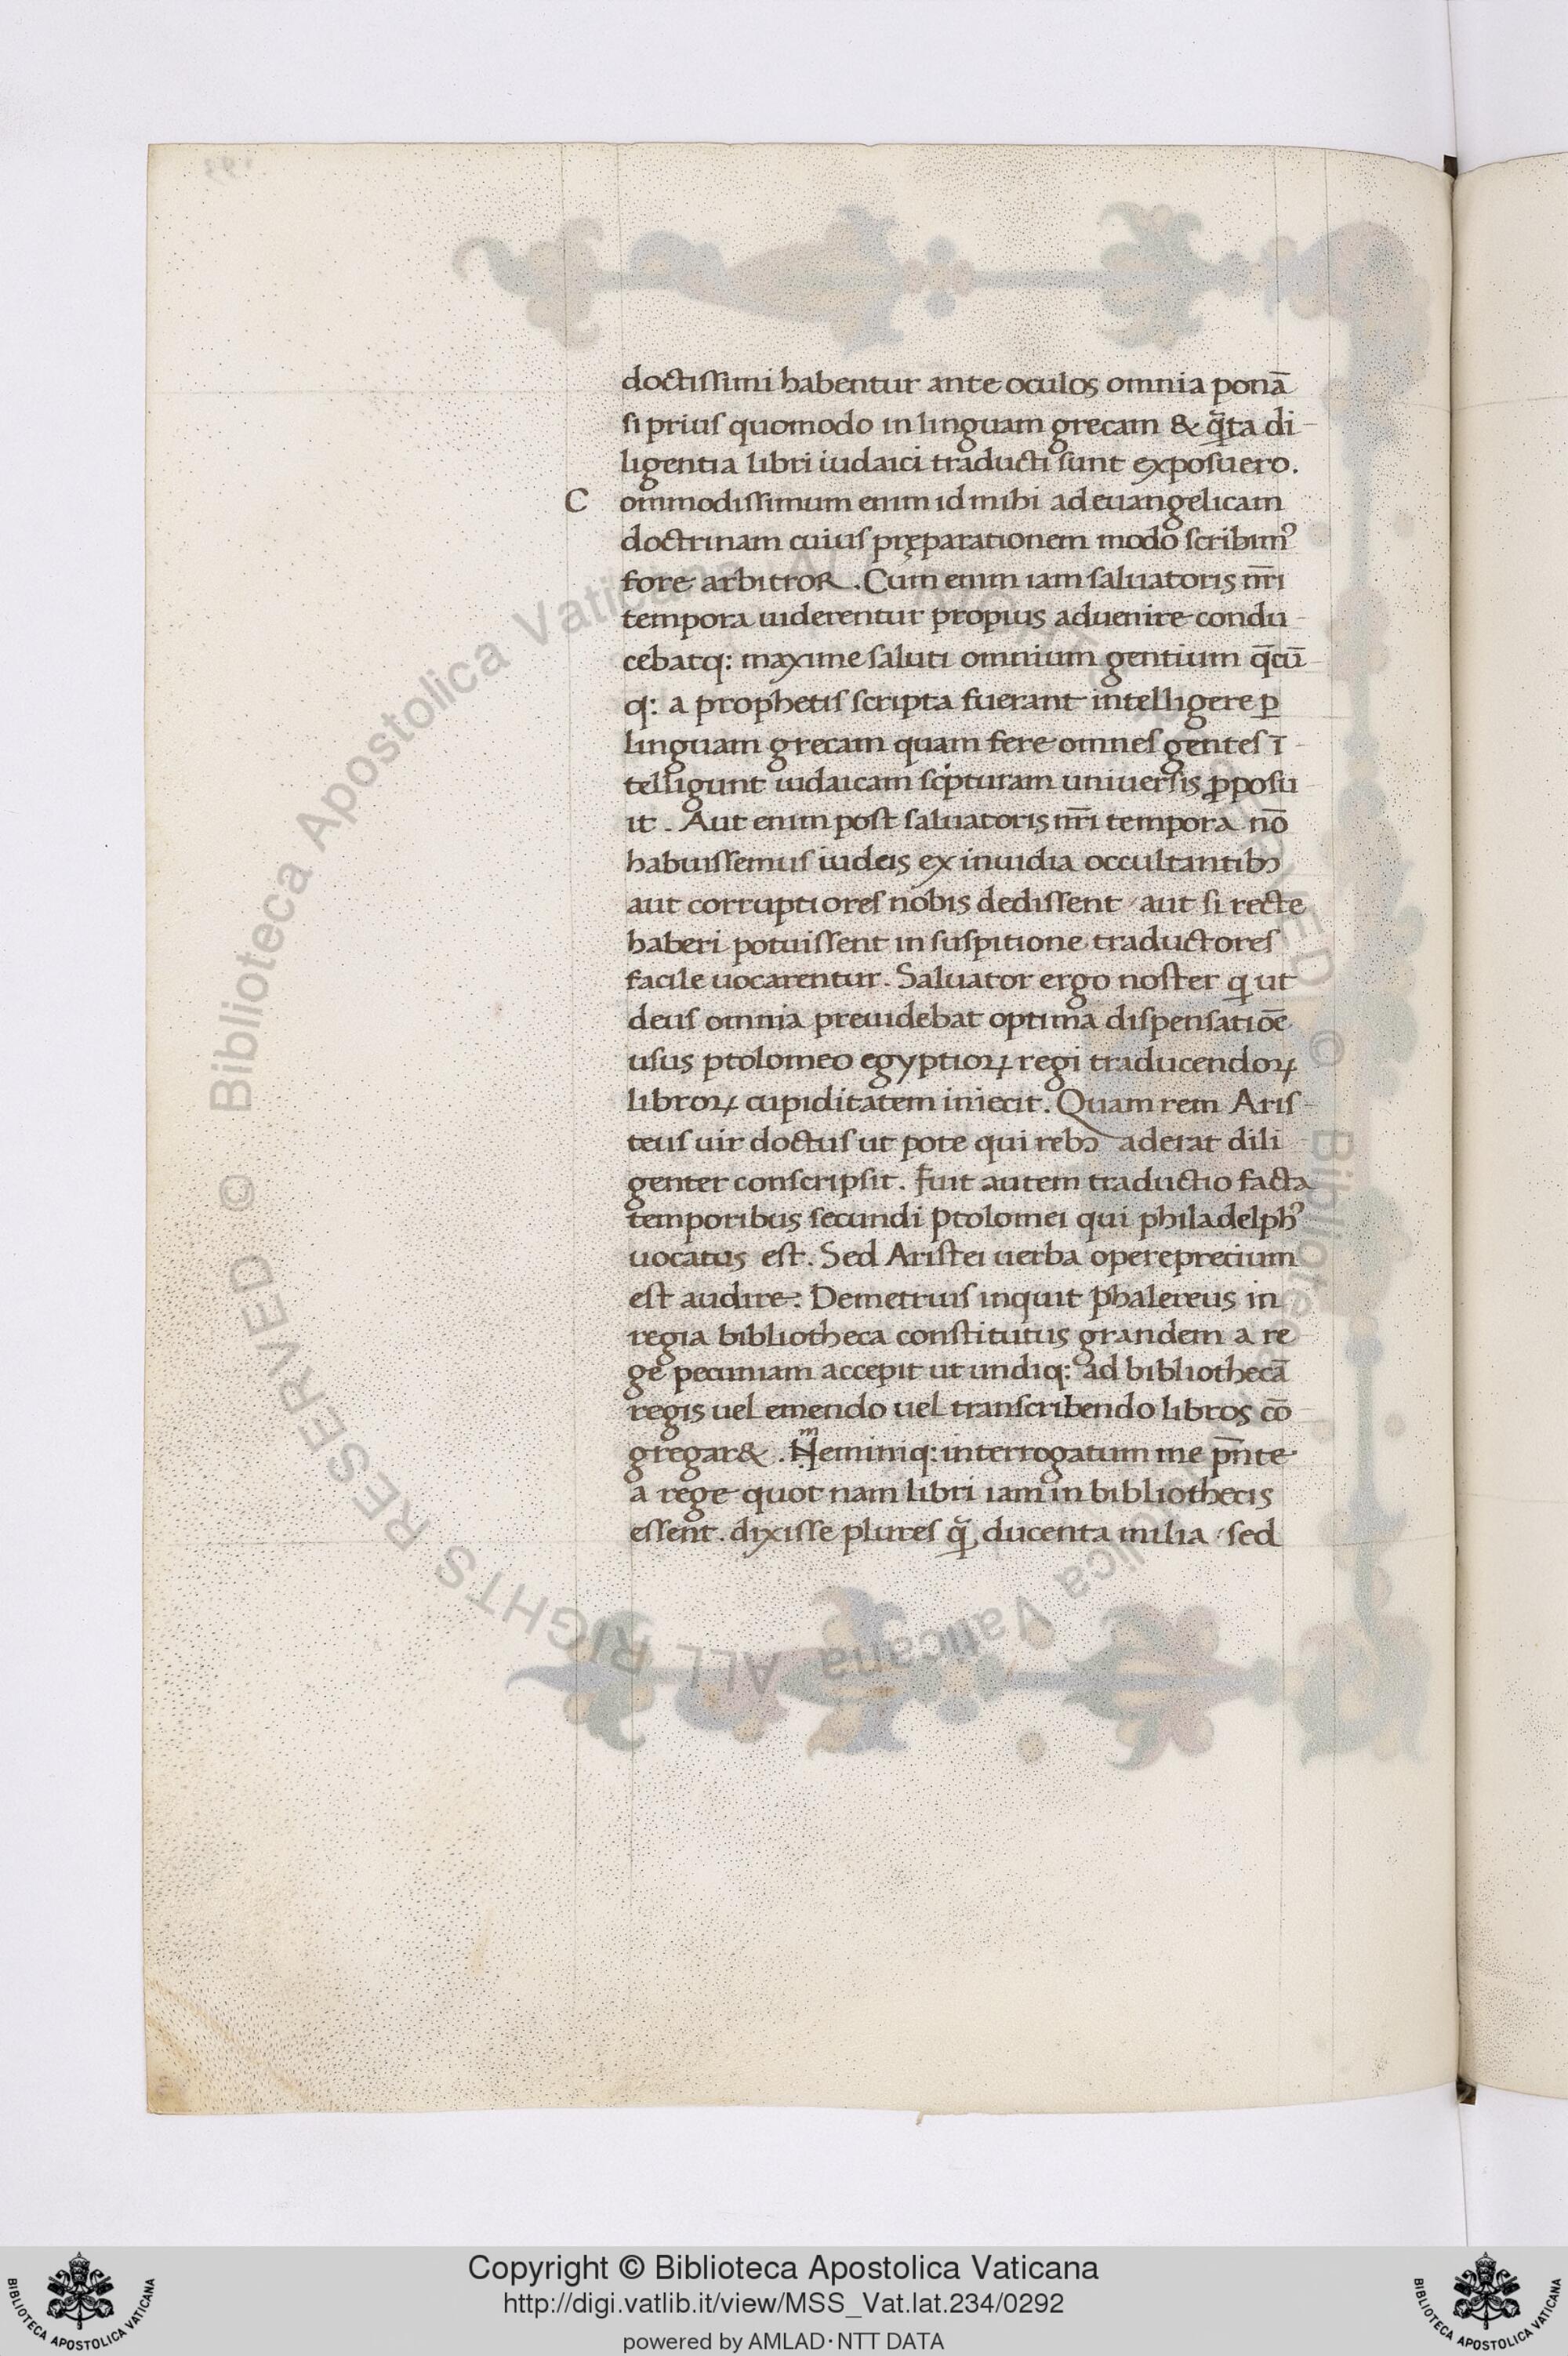 doctissimi habentur ante oculos omnia ponā
si prius quomodo in linguam grecam & q̄ta di-
ligentia libri iudaici traducti sunt exposuero.
Commodissimum enim id mihi ad euangelicam
doctrinam cuius pręparationem modo scribim⁹
fore arbitror. Cum enim iam saluatoris nr̄i
tempora uiderentur propius aduenire condu-
cebatq: maxime saluti omnium gentium q̄cū-
q: a prophetis scripta fuerant intelligere ꝑ
linguam grecam quam fere omnes gentes ī-
telligunt iudaicam scͥpturam uniuersis ꝓposu
it. Aut enim post saluatoris nr̄i tempora nō
habuissemus iudeis ex inuidia occultantibꝫ
aut corruptiores nobis dedissent / aut si recte
haberi potuissent in suspitione traductores
facile uocarentur. Saluator ergo noster qͥ ut
deus omnia preuidebat optima dispensatiōe
usus ptolomeo egyptioꝝ regi traducendoꝝ
libroꝝ cupiditatem iniecit. Quam rem Aris-
teus uir doctus ut pote qui rebꝫ aderat dili
genter conscripsit. Fuit autem traductio facta
temporibus secundi Ptolomei qui philadelph⁹
uocatus est. Sed Aristei uerba operepretium
est audire. Demetrius inquit Phalereus in
regia bibliotheca constitutus grandem a re
ge pecuniam accepit ut undiq: ad bibliothecā
regis uel emendo uel transcribendo libros cō
gregar&. Neminiq: interrogatum me p̄nte
a rege quot nam libri iam in bibliothecis
essent. dixisse plures q̄ ducenta milia / sed
© Biblioteca Apostolica Vaticana ALL RIGHTS RESERVED © Biblioteca Apostolica Vaticana ALL RIGHTS RESERVED
Copyright © Biblioteca Apostolica Vaticana
http://digi.vatlib.it/view/MSS_Vat.lat.234/0292
powered by AMLAD·NTT DATA
BIBLIOTECA APOSTOLICA VATICANA
BIBLIOTECA APOSTOLICA VATICANA